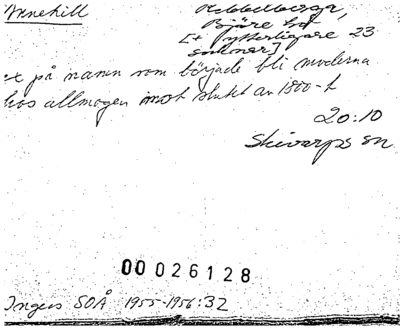 Annehill
Hebbelberga,
Bjäre hd
[+ ytterligare 23
socknar]
et på namn som började bli moderna
hos allmogen mot slutet av 1800-t
20:10
Skivarps sn
00 026128
Ingers SOÅ 1955-1956:32